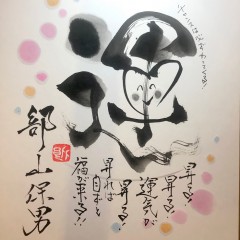 運
昇る!
昇る!!
運気が
昇る!!
昇れば
自ずと
福が来る!!
部山保男